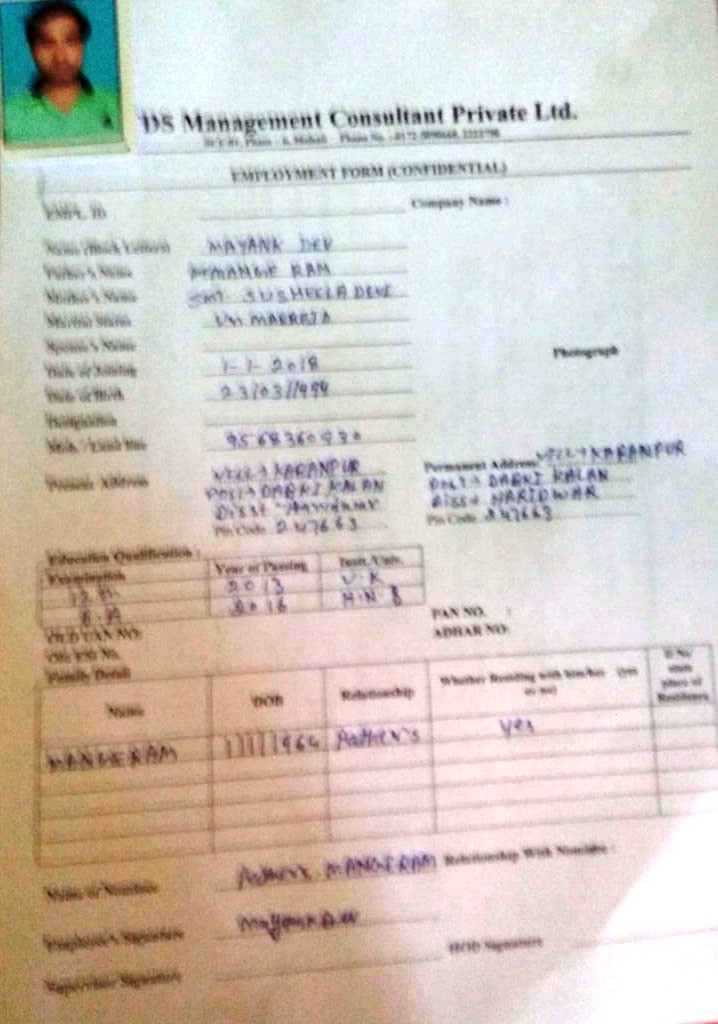 DS Management Consultant Private Ltd.
EMPLOYMENT FORM (CONFIDENTIAL)
EMPL ID Company Name :
Name (Block Letters) MAYANK DEV
Father's Name RAM
Mother's Name SMT. SUSHEELA DEVI
Marital Status
Spouse's Name
Date of Joining 1-1-2018
Date of Birth 23/03/1994
Designation
Photograph
Present Address VILL→KARANPUR
POST→DABKI KALAN
Pin Code 247663
Permanent Address VILL→KARANPUR
POST→DABKI KALAN
DISST→HARIDWAR
Pin Code 247663
Education Qualification :
Examination Year of Passing Instt./Univ.
2013 U.K
B.A 2016 H.N.B
OLD UAN NO: PAN NO. :
Old ESI No. ADHAR NO:
Family Detail
Name DOB Relationship Whether Residing with him/her (yes or no) If No state place of Residence
MANGERAM 1/1/1964 Father's yes
Name of Nominee Father's MANGERAM Relationship With Nominee :
Employee's Signature
Supervisor Signature HOD Signature